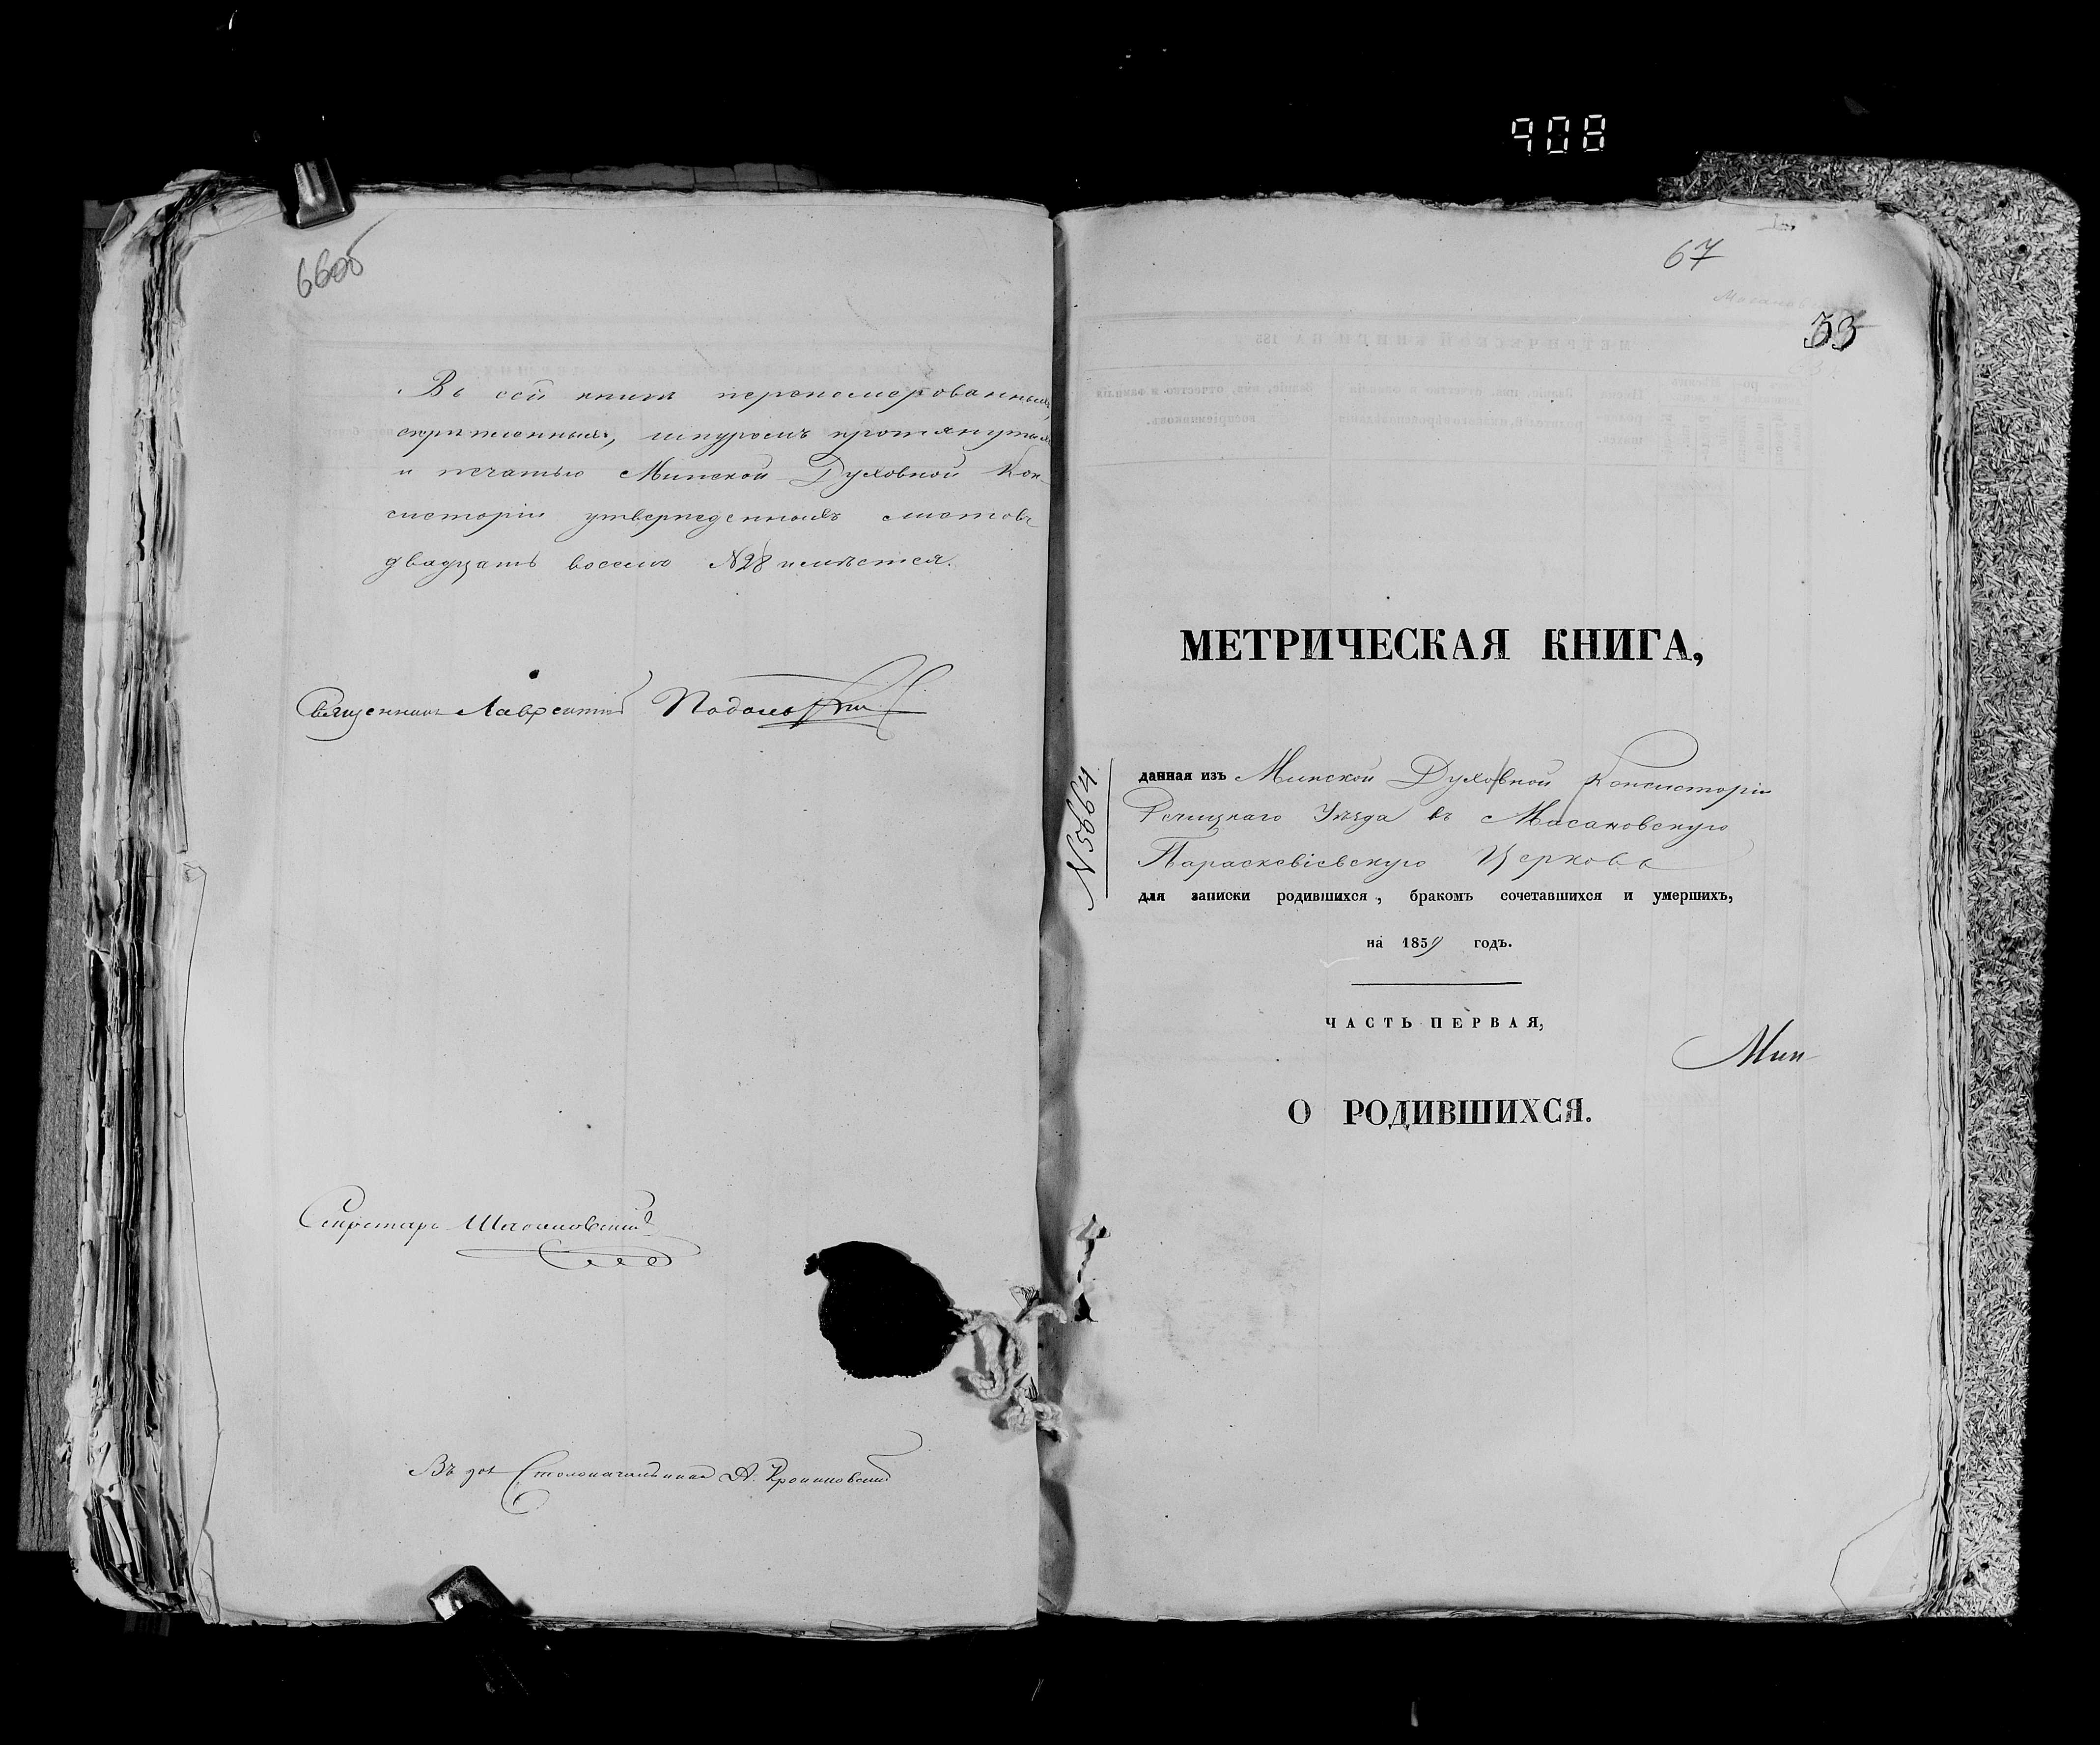 908
66об
Въ сей книгѣ переномерованныхъ,
скрѣпленныхъ, шнуромъ протянутыхъ
и печатью Минской Духовной Кон-
систоріи утвержденныхъ листовъ
двадцать восемь №28 имѣется.
Священникъ Лаврентій
Секретарь
Въ дол Столоначальника А.
67
33
МЕТРИЧЕСКАЯ КНИГА,
№5664
данная изъ Минской Духовной Консисторіи
Речицкаго Уѣзда въ Масановскую
Параскевіевскую Церковь
для записки родившихся, бракомъ сочетавшихся и умершихъ,
на 1859 годъ.
ЧАСТЬ ПЕРВАЯ,
Мин
О РОДИВШИХСЯ.